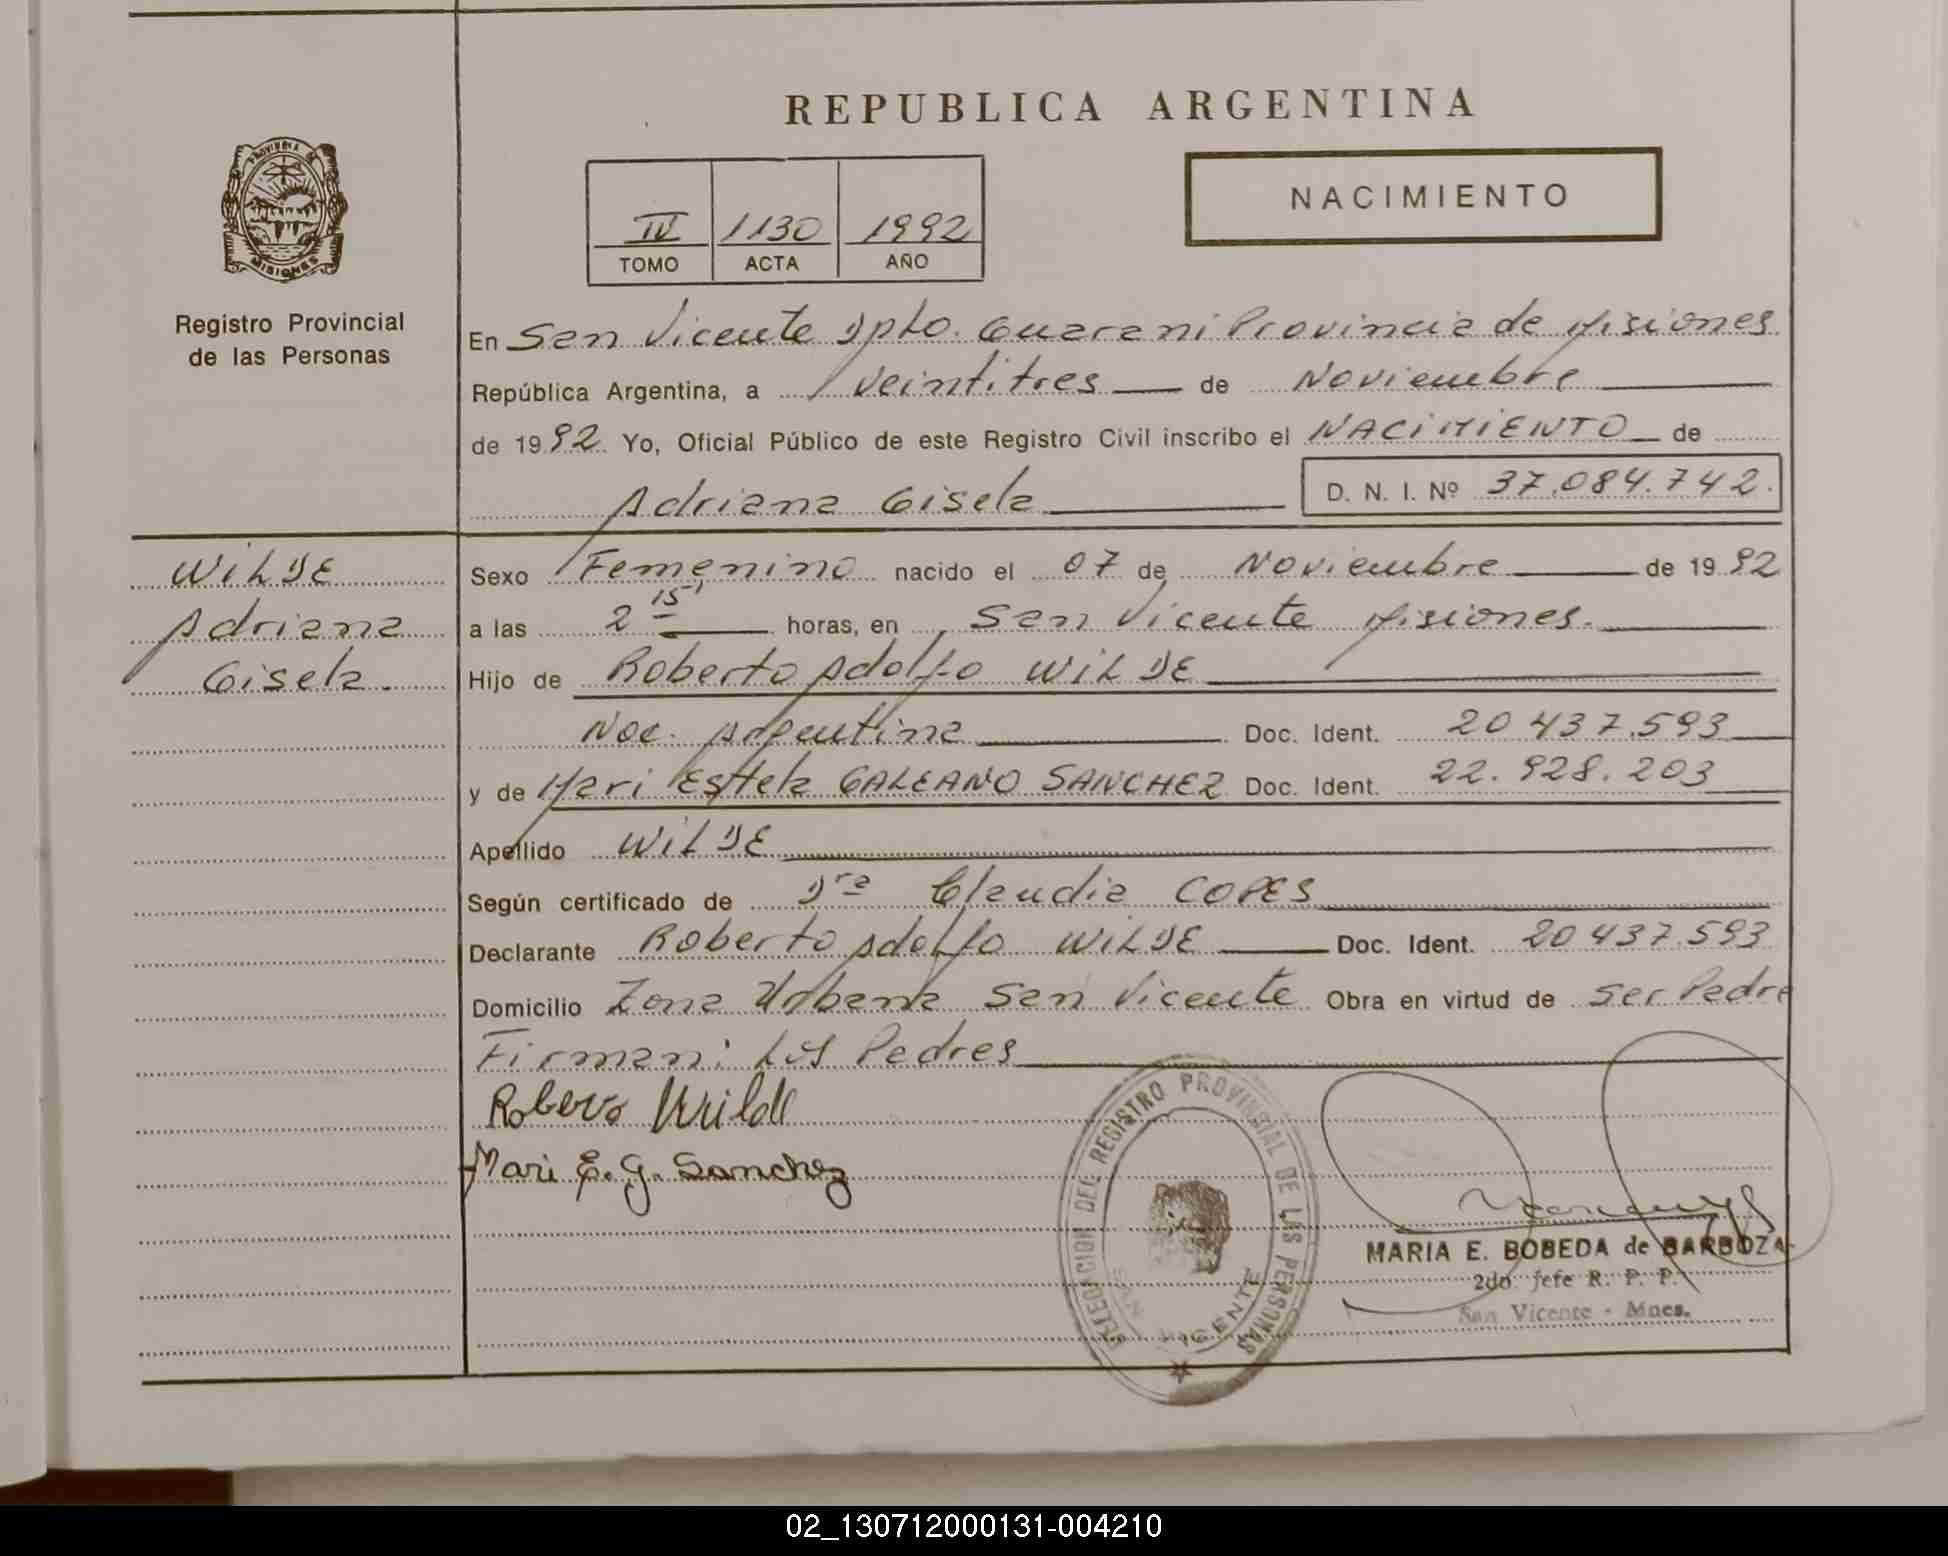 REPUBLICA ARGENTINA
PROVINCIA DE
MISIONES
Registro Provincial
de las Personas
IV 1130 1992
TOMO ACTA AÑO
NACIMIENTO
En San Vicente Dpto. Guarani Provincia de Misiones
República Argentina, a Veintitres de Noviembre
de 1992 Yo, Oficial Público de este Registro Civil inscribo el NACIMIENTO de
Adriana Gisela D. N. I. Nº 37.084.742.
WILDE
Adriana
Gisela.
Sexo Femenino nacido el 07 de Noviembre de 1992
a las 2 15' horas, en San Vicente Misiones.
Hijo de Roberto Adolfo WILDE
Nac. Argentina Doc. Ident. 20 437.593
y de Mari Estela GALEANO SANCHEZ Doc. Ident. 22.928.203
Apellido WILDE
Según certificado de Dra Claudia COPES
Declarante Roberto Adolfo WILDE Doc. Ident. 20 437.593
Domicilio Zona Urbana San Vicente Obra en virtud de Ser Padre
Firman: Los Padres
Roberto Wilde
Mari E. G. Sanchez
DELEGACION DEL REGISTRO PROVINCIAL DE LAS PERSONAS
SAN VICENTE
MARIA E. BOBEDA de BARBOZA
2do. Jefe R. P. P.
San Vicente - Mnes.
02_130712000131-004210